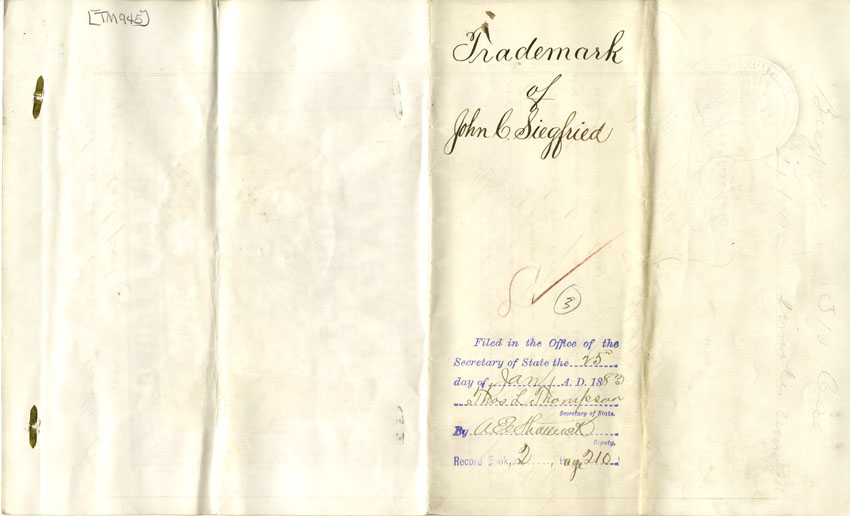 [TM945]
Trademark
of
John C. Siegfried
3
Filed in the Office of the
Secretary of State the 25
day of Jan'y A. D. 1883
Thos L. Thompson
Secretary of State.
By
Deputy.
Record Book, 2, Page 210